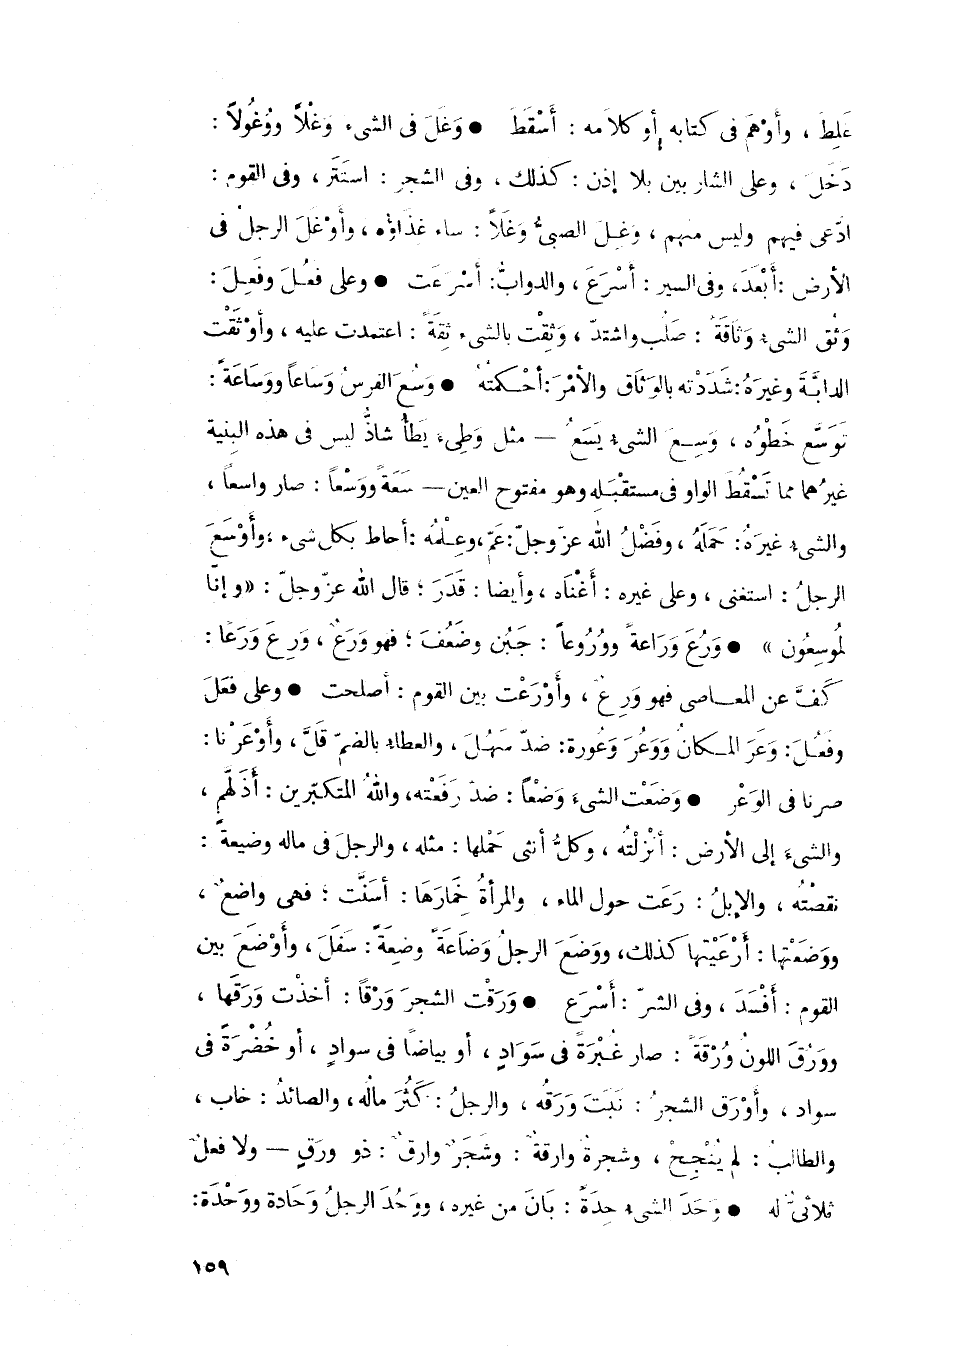 غَلِطَ ، وأَوْهَمَ فى كتابه أو كلامه : أَسْقَطَ ● وَغَلَ فى الشىء وَغْلاً ووُغُولاً :
دَخَلَ ، وعلى الشاربين بلا إذن : كذلك ، وفى الشجر : استَتَر ، وفى القوم :
ادّعى فيهم وليس منهم ، وَغِلَ الصبىُّ وَغَلاً : ساء غذاؤه ، وأَوْغَلَ الرجلُ فى
الأرض : أَبْعَدَ، وفى السير : أَسْرَعَ ، والدوابُّ: أَسْرَعَت ● وعلى فَعُلَ وفَعِلَ :
وَثُق الشىءُ وَثَاقَةً : صَلُب واشتدّ ، وَثِقْت بالشىء ثِقَةً : اعتمدت عليه ، وأَوْثَقْت
الدابَّةَ وغيرَهُ : شَدَدْته بالوَثَاق والأمْرَ : أَحْكمتُهُ ● وَسُعَ الفرسُ وَسَاعاً ووَسَاعَةً :
تَوَسَّع خَطْوُه ، وَسِعَ الشىءُ يَسَعُ — مثل وَطِىءَ يَطَأُ شاذٌّ ليس فى هذه البِنية
غيرُهما مما تَسْقُطَ الواو فى مستقبَلِه وهو مفتوح العين — سَعَةً ووَسْعاً : صار واسعاً ،
والشىءُ غيرَهُ : حَمَلَهُ ، وفَضْلُ الله عزّ وجلّ : عَمّ ، وعِلْمُه : أحاط بكل شىء ، وأَوْسَعَ
الرجلُ : استغنى ، وعلى غيره : أَغْنَاه ، وأيضا : قَدَرَ ؛ قال الله عزّ وجلّ : « وإنّا
لَمُوسِعُون » ● وَرُعَ وَرَاعةً ووُرُوعاً : جَبُن وضَعُفَ ؛ فهو وَرَعٌ ، وَرِعَ وَرَعًا :
كَفَّ عن المعاصى فهو وَرِعٌ ، وأَوْرَعْت بين القوم : أصلحت ● وعلى فَعَلَ
وفَعُلَ : وَعَرَ المكانُ وَوَعُرَ وَعُورة : ضدّ سَهُلَ ، والعطاءُ بالضمّ قَلَّ ، وأَوْعَرْنا :
صرنا فى الوَعْر ● وَضَعْت الشىءَ وَضْعاً : ضدّ رَفَعْته، واللهُ المتكبّرين : أَذَلَّهم ،
والشىءَ إلى الأرض : أنْزلْتُه ، وكلُّ أنثى حَمْلها : مثله ، والرجلَ فى ماله وضيعةً :
نقصْتُه ، والإبلُ : رَعَت حول الماء ، والمرأةُ خِمَارَهَا : أسَنَّت ؛ فهى واضعٌ ،
ووَضَعْتها : أَرْعَيْتها كذلك، ووَضَعَ الرجلُ وَضَاعَةً وضِعَةً : سَفَلَ ، وأَوْضَعَ بين
القوم : أَفْسَدَ ، وفى الشرّ : أَسْرَع ● وَرَقْت الشجرَ وَرْقاً : أخذْت وَرَقَها ،
ووَرُقَ اللونُ وُرْقَةً : صار غُبْرَةً فى سَوَادٍ ، أو بياضًا فى سوادٍ ، أو خُضْرَةً فى
سواد ، وأَوْرَق الشجرُ : نَبَتَ وَرَقُه ، والرجلُ : كَثُرَ مالُه، والصائدُ : خاب ،
والطالبُ : لم يُنْجِحْ ، وشجرةٌ وارقةٌ : وشَجَرٌ وارقٌ : ذو ورَقٍ — ولا فعلٌ
ثلاثىٌّ له ● وَحَدَ الشىءُ حِدَةً : بَانَ من غيره ، ووَحُدَ الرجلُ وَحَادة ووَحْدَة :
١٥٩